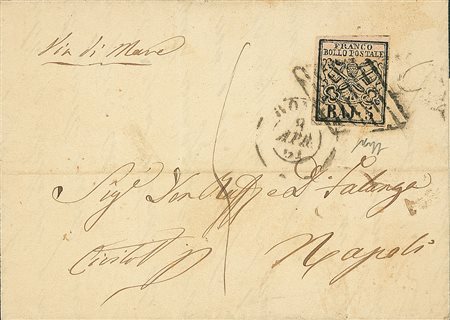 Via di Mare
FRANCO
BOLLO POSTALE
BAJ. 5
ROMA
9
APR
Sig.r D'Falanga
Napoli